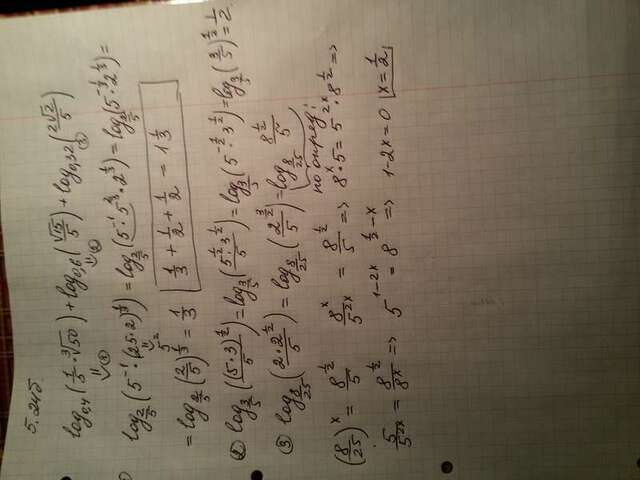 5.245.
log₀,₄(1/5 · ³√50) + log₀,₆(√15/5) + log₀,₃₂(2√2/5)
① ② ③
① log_{2/5}(5⁻¹·(25·2)^{1/3}) = log_{2/5}(5⁻¹·5^{2/3}·2^{1/3}) = log_{2/5}(5^{-1/3}·2^{1/3}) =
5²
= log_{2/5}(2/5)^{1/3} = 1/3
1/3 + 1/2 + 1/2 = 1 1/3
② log_{3/5}((5·3)^{1/2}/5) = log_{3/5}(5^{1/2}·3^{1/2}/5) = log_{3/5}(5^{-1/2}·3^{1/2}) = log_{3/5}(3/5)^{1/2} = 1/2
③ log_{8/25}(2·2^{1/2}/5) = log_{8/25}(2^{3/2}/5) = log_{8/25} 8^{1/2}/5
по опред:
(8/25)^x = 8^{1/2}/5 8^x/5^{2x} = 8^{1/2}/5 => 8^x·5 = 5^{2x}·8^{1/2} =>
5/5^{2x} = 8^{1/2}/8^x => 5^{1-2x} = 8^{1/2-x} => 1-2x=0 x=1/2